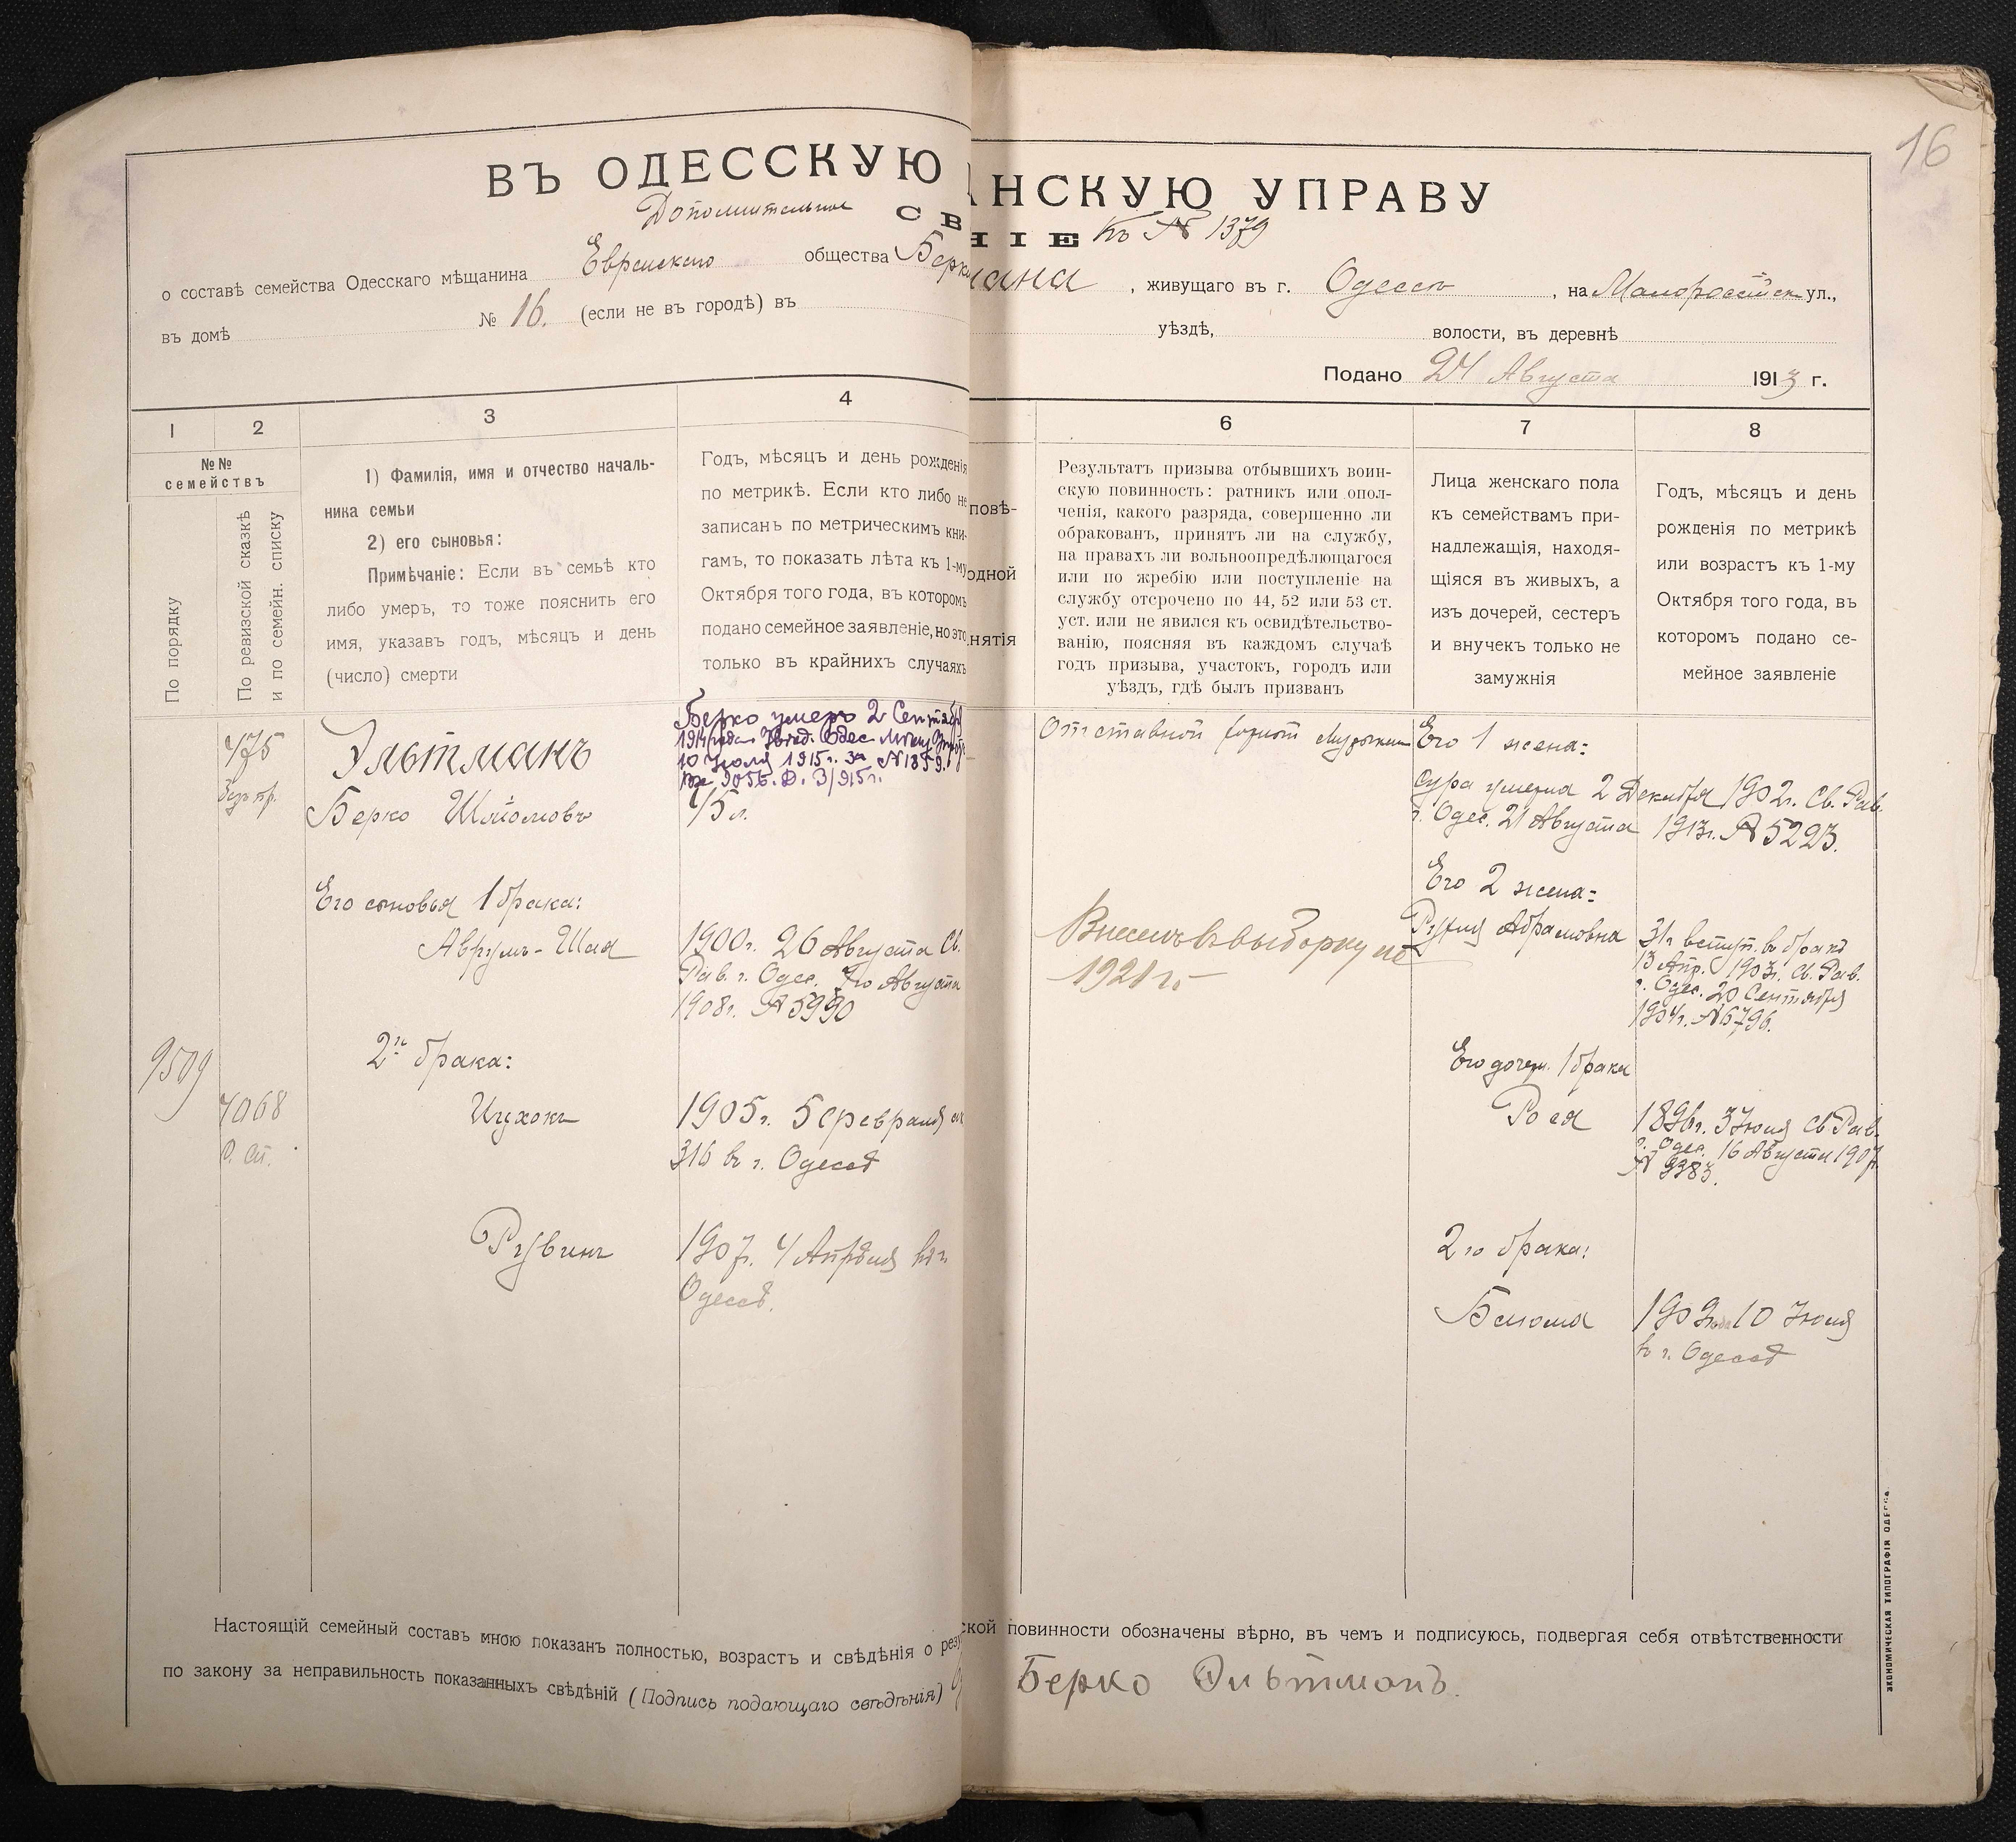 16
ВЪ ОДЕССКУЮ
АНСКУЮ УПРАВУ
Дополнительное
СВ
НІЕ къ № 1379
о составѣ семейства Одесскаго мѣщанина Еврейскаго общества Берк
мана, живущаго въ г. Одессѣ, на Малороссійск ул.,
въ домѣ № 16. (если не въ городѣ) въ
уѣздѣ, волости, въ деревнѣ
Подано 24 Августа 1913 г.
1
2
3
4
6
7
8
№№
семействъ
По порядку
По ревизской сказкѣ
и по семейн. списку
1) Фамилія, имя и отчество началь-
ника семьи
2) его сыновья:
Примѣчаніе: Если въ семьѣ кто
либо умеръ, то тоже пояснить его
имя, указавъ годъ, мѣсяцъ и день
(число) смерти
Годъ, мѣсяцъ и день рожденія
по метрикѣ. Если кто либо не
записанъ по метрическимъ кни-
гамъ, то показать лѣта къ 1-му
Октября того года, въ которомъ
подано семейное заявленіе, но это
только въ крайнихъ случаяхъ
повѣ-
одной
нятія
Результатъ призыва отбывшихъ воин-
скую повинность: ратникъ или опол-
ченія, какого разряда, совершенно ли
обракованъ, принятъ ли на службу,
на правахъ ли вольноопредѣляющагося
или по жребію или поступленіе на
службу отсрочено по 44, 52 или 53 ст.
уст. или не явился къ освидѣтельство-
ванію, поясняя въ каждомъ случаѣ
годъ призыва, участокъ, городъ или
уѣздъ, гдѣ былъ призванъ
Лица женскаго пола
къ семействамъ при-
надлежащія, находя-
щіяся въ живыхъ, а
изъ дочерей, сестеръ
и внучекъ только не
замужнія
Годъ, мѣсяцъ и день
рожденія по метрикѣ
или возрастъ къ 1-му
Октября того года, въ
которомъ подано се-
мейное заявленіе
475
безъ пр.
Эльтманъ
Берко Шлёмовъ
Берко умеръ 2 Сентября
1914 года Увѣд. Одес. Мѣщ. Упр.
10 Іюля 1915 г. за № 1859.
1915 г.
45 л.
Его сыновья 1 брака:
Аврумъ-Шая
1900 г. 26 Августа Св.
Рав. г. Одес. Августа
1908 г. № 5990
2го брака:
9509
7068
Р. Сп.
Ицхокъ
1905 г. 5 февраля
316 въ г. Одессѣ
Рувинъ
1907 г. 4 Апрѣля въ г.
Одессѣ.
Отставной
Внесенъ въ выборку на
1921 г.
Его 1 жена:
Сура умерла 2 Декабря 1902 г. Св. Рав.
г. Одес. 21 Августа 1913 г. № 5223.
Его 2 жена:
Рухля Абрамовна
31 г вступ. въ бракъ
13 Апр. 1903 г. Св. Рав.
г. Одес. 20 Сентября
1904 г. № 6796.
Его дочери 1 брака
Роза
1896 г. 3 Іюля Св. Рав.
г. Одес. 16 Августа 1907 г.
№ 9383.
2го брака:
Блюма
1909 года 10 Іюля
въ г. Одессѣ
Настоящій семейный составъ мною показанъ полностью, возрастъ и свѣдѣнія о резу
ской повинности обозначены вѣрно, въ чемъ и подписуюсь, подвергая себя отвѣтственности
по закону за неправильность показанныхъ свѣдѣній (Подпись подающаго свѣдѣнія)
Берко Эльтманъ.
ЭКОНОМИЧЕСКАЯ ТИПОГРАФІЯ ОДЕССА.